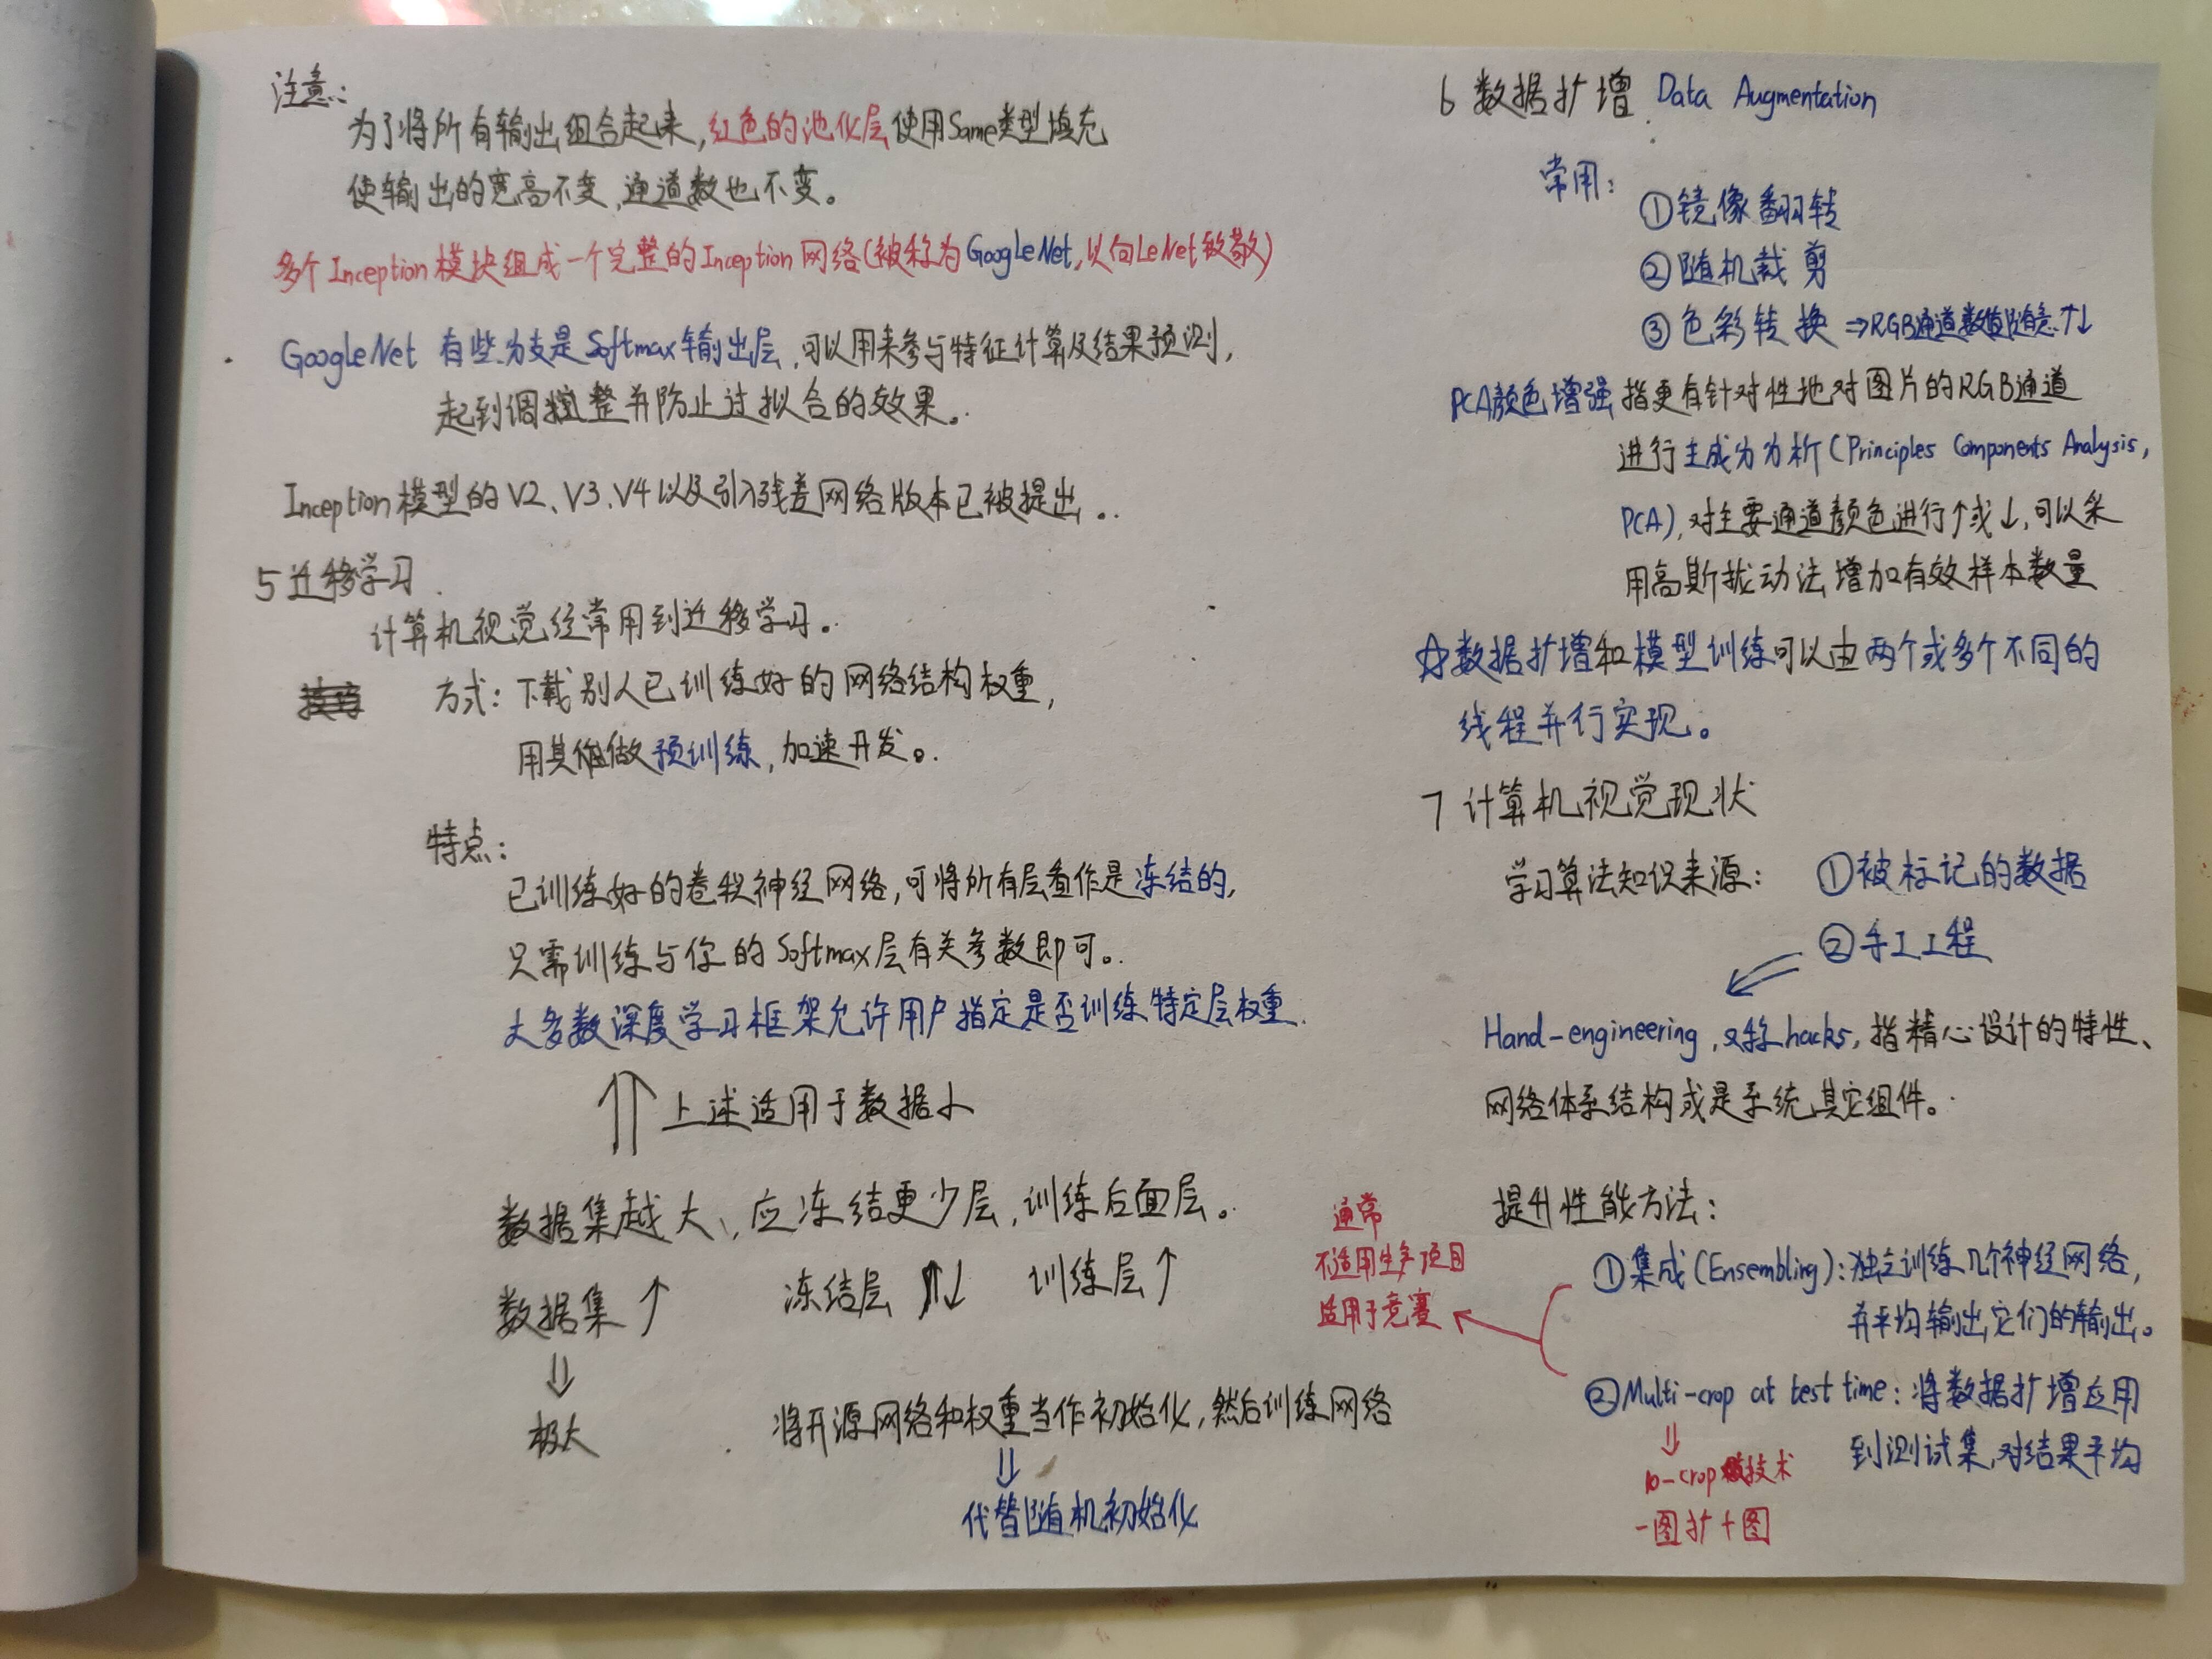 注意:
为了将所有输出组合起来,红色的池化层使用Same类型填充
使输出的宽高不变,通道数也不变。
多个Inception模块组成一个完整的Inception网络(被称为GoogleNet,以向LeNet致敬)
GoogleNet 有些分支是Softmax输出层,可以用来参与特征计算及结果预测,
起到调整并防止过拟合的效果。
Inception模型的V2、V3、V4以及引入残差网络版本已被提出。
5 迁移学习
计算机视觉经常用到迁移学习。
方式:下载别人已训练好的网络结构权重,
用其做预训练,加速开发。
特点:
已训练好的卷积神经网络,可将所有层看作是冻结的,
只需训练与你的Softmax层有关参数即可。
大多数深度学习框架允许用户指定是否训练特定层权重.
⇑ 上述适用于数据小
数据集越大,应冻结更少层,训练后面层。
数据集↑ 冻结层↓ 训练层↑
⇓
极大 将开源网络和权重当作初始化,然后训练网络
⇓
代替随机初始化
6 数据扩增 Data Augmentation
常用:
①镜像翻转
②随机裁剪
③色彩转换 ⇒RGB通道数值随意↑↓
PCA颜色增强 指更有针对性地对图片的RGB通道
进行主成分分析(Principles Components Analysis,
PCA),对主要通道颜色进行↑或↓,可以采
用高斯扰动法增加有效样本数量
☆数据扩增和模型训练可以由两个或多个不同的
线程并行实现。
7 计算机视觉现状
学习算法知识来源: ①被标记的数据
②手工工程
Hand-engineering,又称hacks,指精心设计的特性、
网络体系结构或是系统其它组件。
提升性能方法:
①集成(Ensembling):独立训练几个神经网络,
并平均输出它们的输出。
②Multi-crop at test time:将数据扩增应用
到测试集,对结果平均
⇓
10-crop技术
一图扩十图
通常
不适用生产项目
适用于竞赛